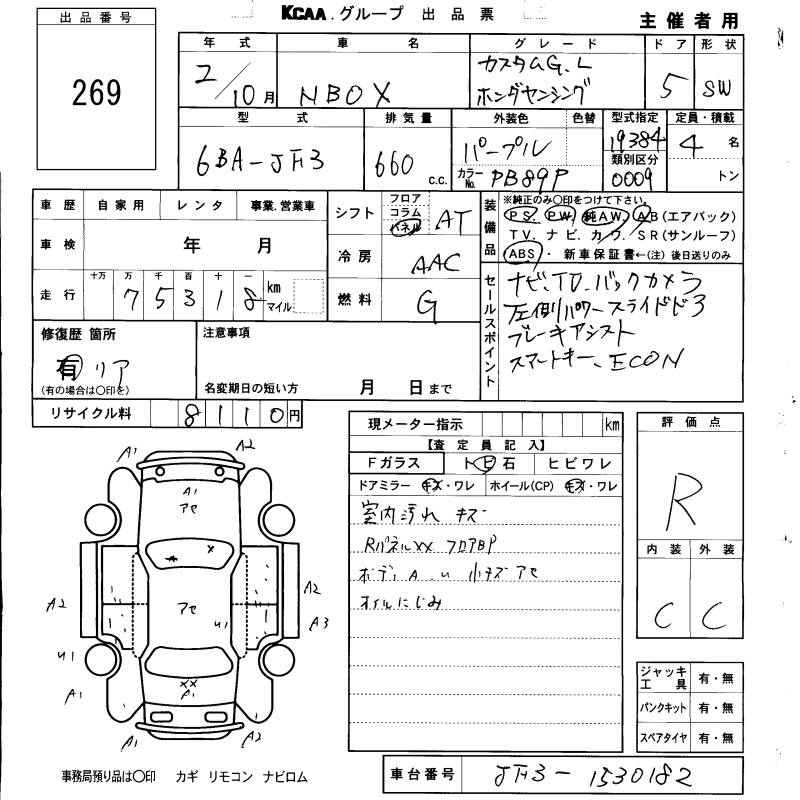 KCAA.グループ 出品票
主催者用
出品番号
269
年式 車名 グレード ドア 形状
2/10月 NBOX カスタムG.L ホンダセンシング 5 SW
型式 排気量 外装色 色替 型式指定 定員・積載
6BA-JF3 660 c.c. パープル 19384 4 名
カラーNo. PB89P 類別区分 0009 トン
車歴 自家用 レンタ 事業.営業車
車検 年 月
走行 十万 万 千 百 十 一 km マイル
7 5 3 1 8
シフト フロア コラム パネル AT
冷房 AAC
燃料 G
装備品 ※純正のみ〇印をつけて下さい。
PS. PW. 純AW. AB(エアバック)
TV. ナビ. カワ. SR(サンルーフ)
ABS ・ 新車保証書←(注)後日送りのみ
セールスポイント
ナビ、TV、バックカメラ
左側パワースライドドア
ブレーキアシスト
スマートキー、ECON
修復歴 箇所
有 リア
(有の場合は〇印を)
注意事項
名変期日の短い方 月 日まで
リサイクル料 8110円
現メーター指示 km
【査定員記入】
Fガラス トビ石 ヒビワレ
ドアミラー キズ・ワレ ホイール(CP) キズ・ワレ
室内汚れ キズ
Rパネルxx フロアBP
ボディ A.U 小キズ アセ
オイルにじみ
評価点
R
内装 外装
C C
ジャッキ工具 有・無
パンクキット 有・無
スペアタイヤ 有・無
A1 A2
A1
アセ
x
A2 アセ A2
U1 A3
U1
xx
A1 A1 A2
A1 A2
事務局預り品は〇印 カギ リモコン ナビロム
車台番号 JF3-1530182